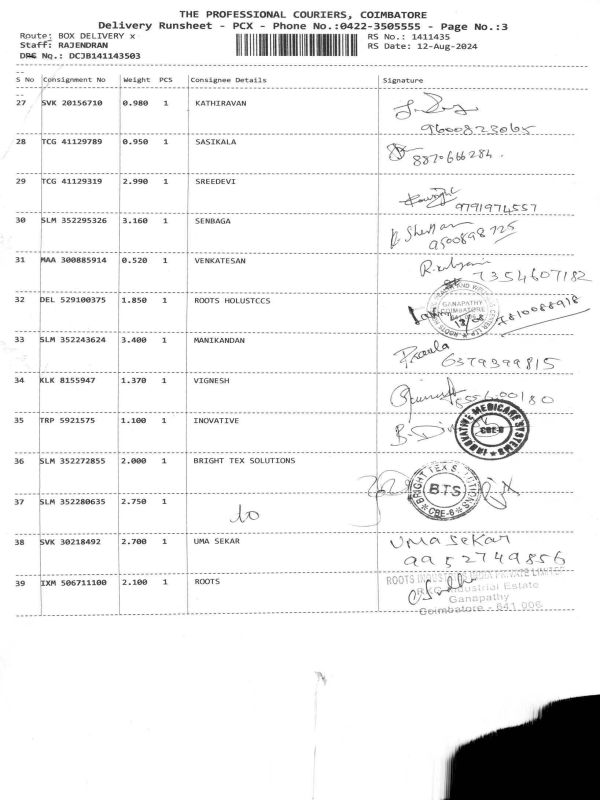 THE PROFESSIONAL COURIERS, COIMBATORE
Delivery Runsheet - PCX - Phone No.:0422-3505555 - Page No.:3
Route: BOX DELIVERY x RS No.: 1411435
Staff: RAJENDRAN RS Date: 12-Aug-2024
DRS No.: DCJB141143503
S No Consignment No Weight PCS Consignee Details Signature
27 SVK 20156710 0.980 1 KATHIRAVAN
9600823065
28 TCG 41129789 0.950 1 SASIKALA
8870666284.
29 TCG 41129319 2.990 1 SREEDEVI
9791974557
30 SLM 352295326 3.160 1 SENBAGA
9500898725
31 MAA 300885914 0.520 1 VENKATESAN
7354607182
32 DEL 529100375 1.850 1 ROOTS HOLUSTCCS
GANAPATHY
COIMBATORE
7810088918
33 SLM 352243624 3.400 1 MANIKANDAN
6379399815
34 KLK 8155947 1.370 1 VIGNESH
35 TRP 5921575 1.100 1 INOVATIVE
INNOVATIVE MEDICARE SYSTEMS
CBE-6
36 SLM 352272855 2.000 1 BRIGHT TEX SOLUTIONS
BRIGHT TEX SOLUTIONS
BTS
CBE-6
37 SLM 352280635 2.750 1
38 SVK 30218492 2.700 1 UMA SEKAR
UMA SEKAR
9952749856
39 IXM 506711100 2.100 1 ROOTS
ROOTS INDUSTRIES INDIA PRIVATE LIMITED
Industrial Estate
Ganapathy
Coimbatore - 641 006